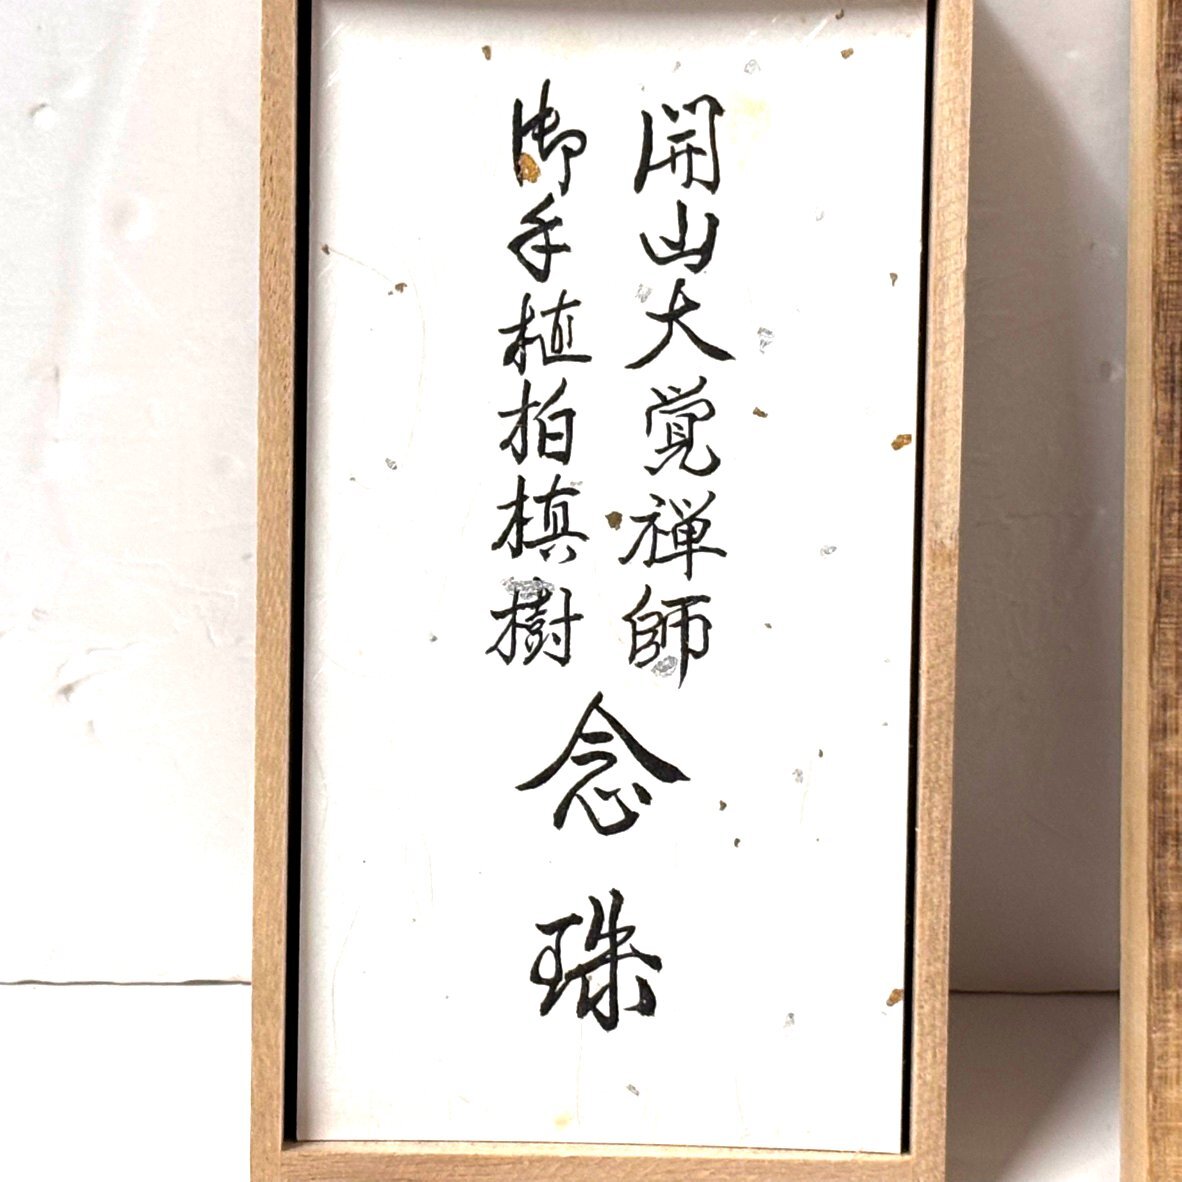 開山大覚禅師
御手植柏槙樹
念珠